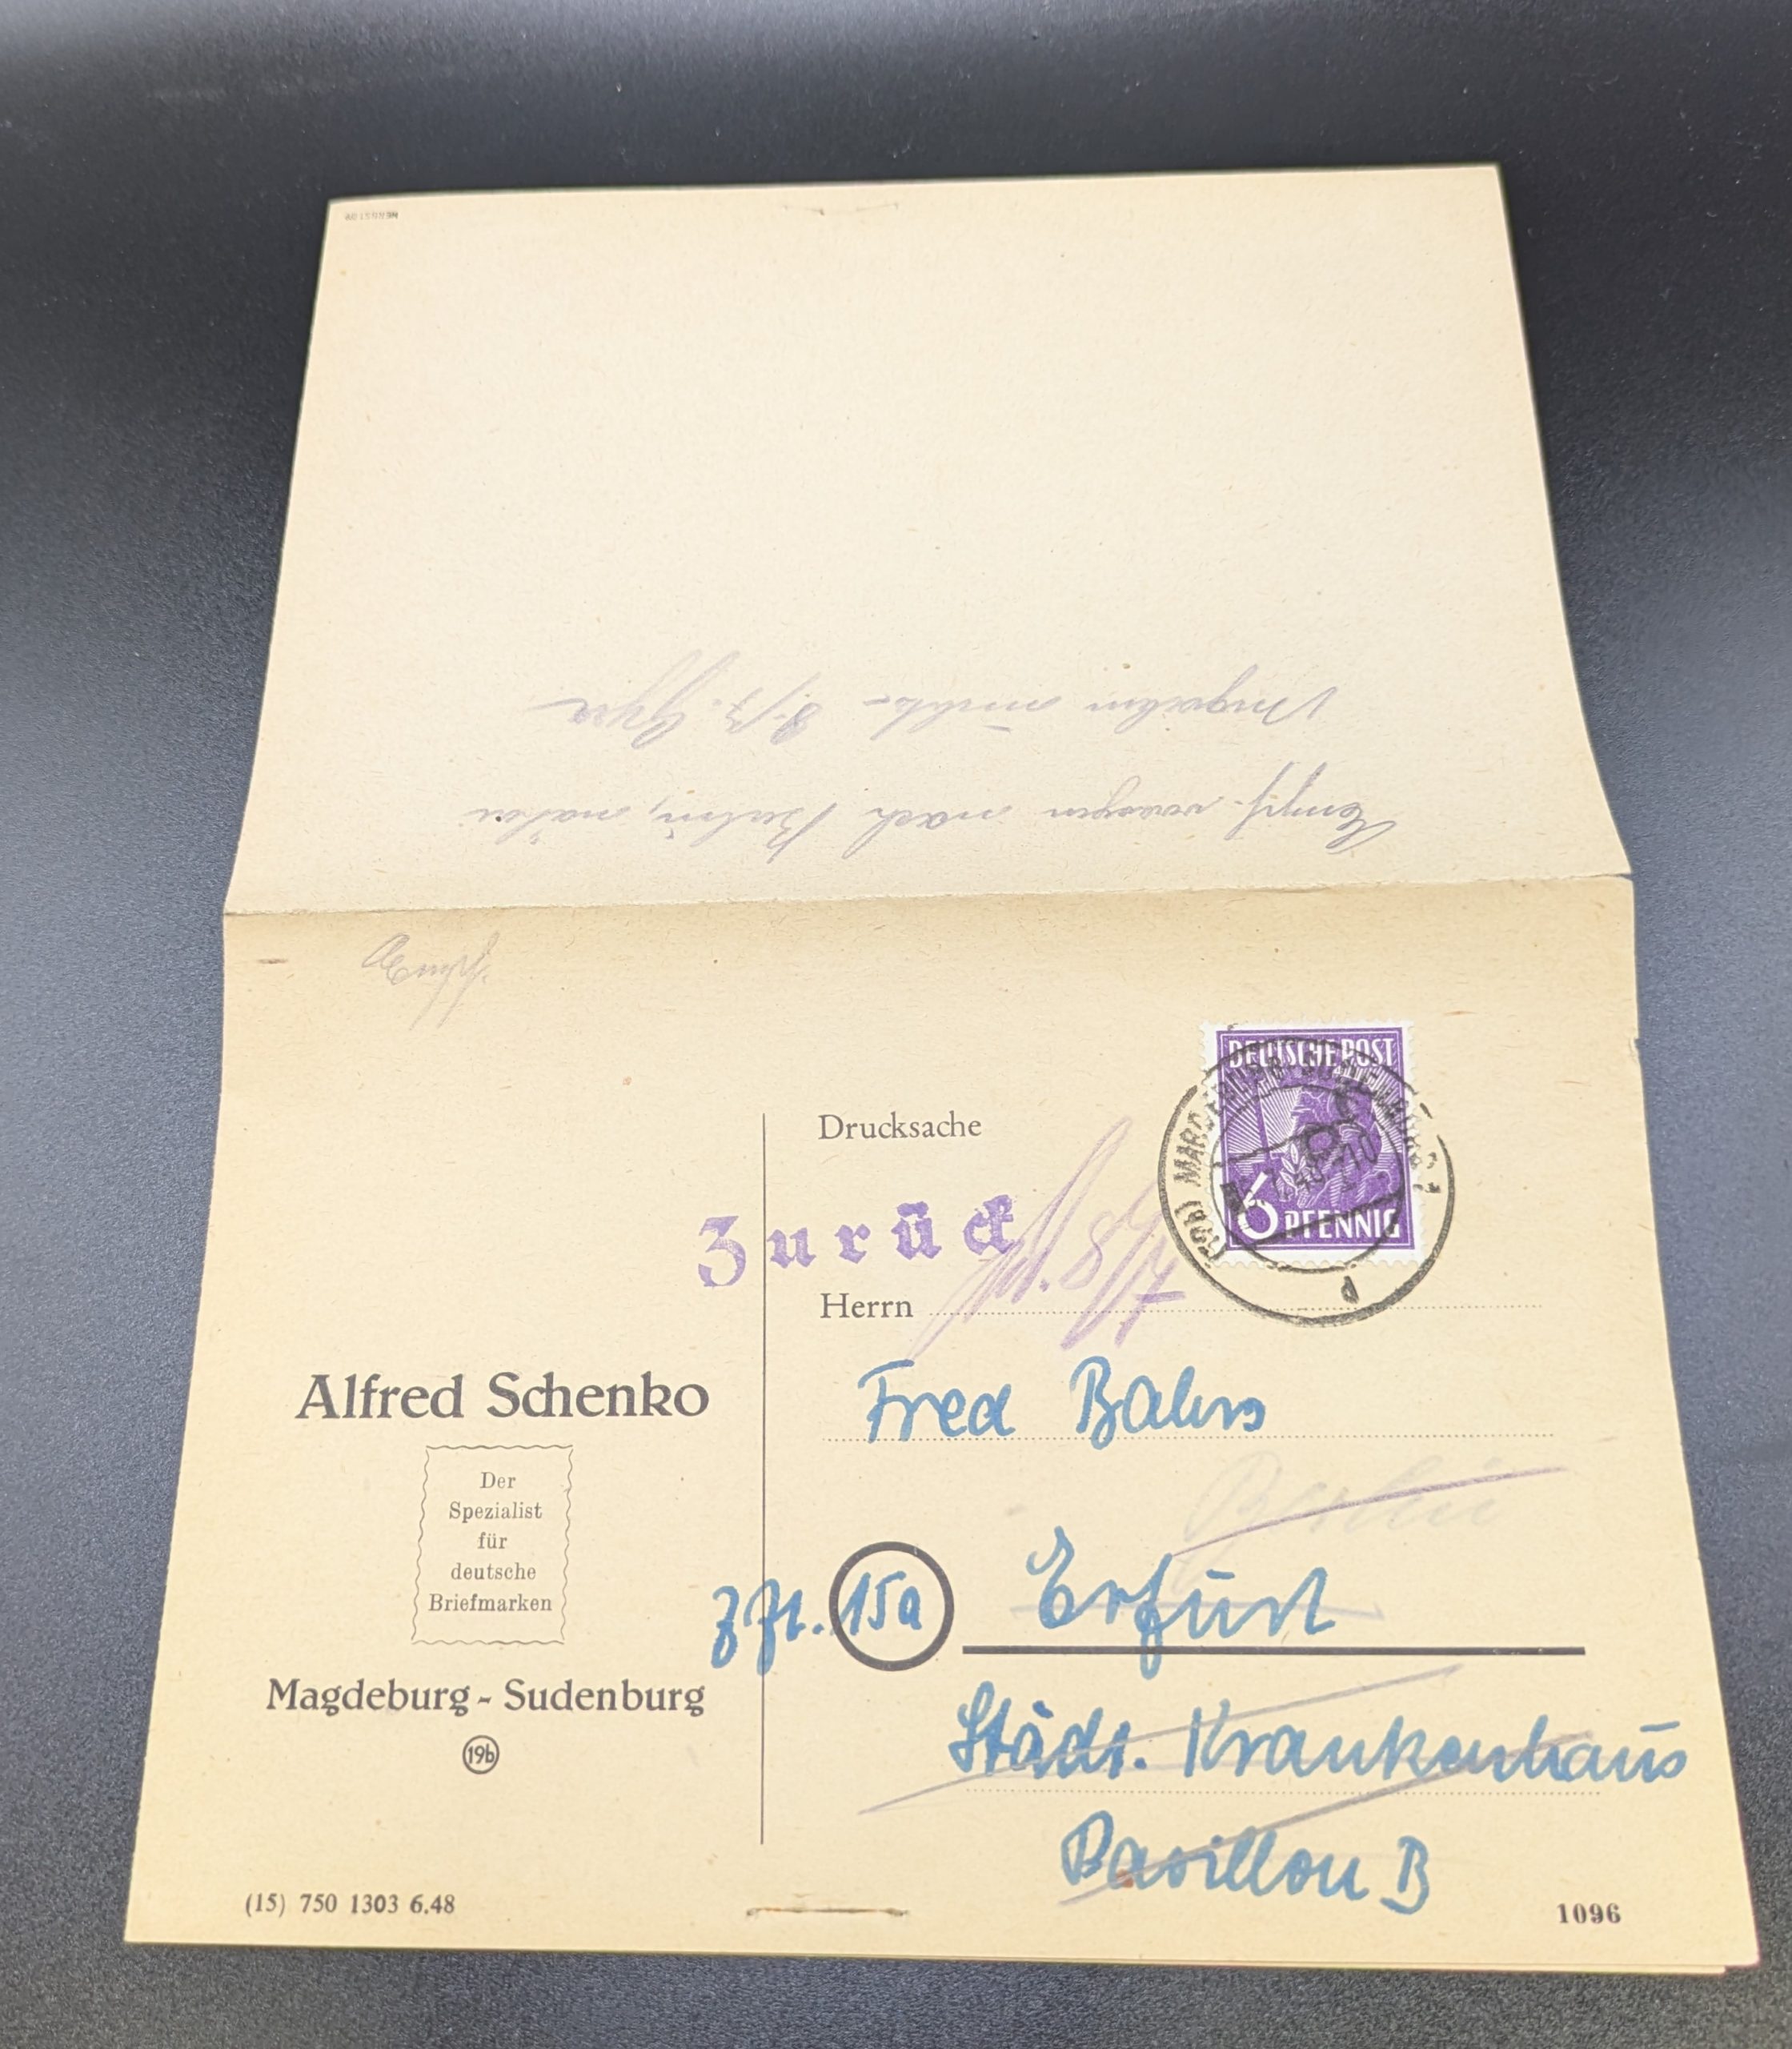 Empf. verzogen nach Berlin, nähere
Angaben nicht 8/7.
Empf.
DEUTSCHE POST
6 PFENNIG
(19b) MAGDEBURG-SUDENBURG
Drucksache
Zurück
8/7
Herrn
Fred Bahrs
Berlin
z. Zt. 15a Erfurt
Städt. Krankenhaus
Pavillon B
Alfred Schenko
Der
Spezialist
für
deutsche
Briefmarken
Magdeburg-Sudenburg
19b
(15) 750 1303 6.48
1096